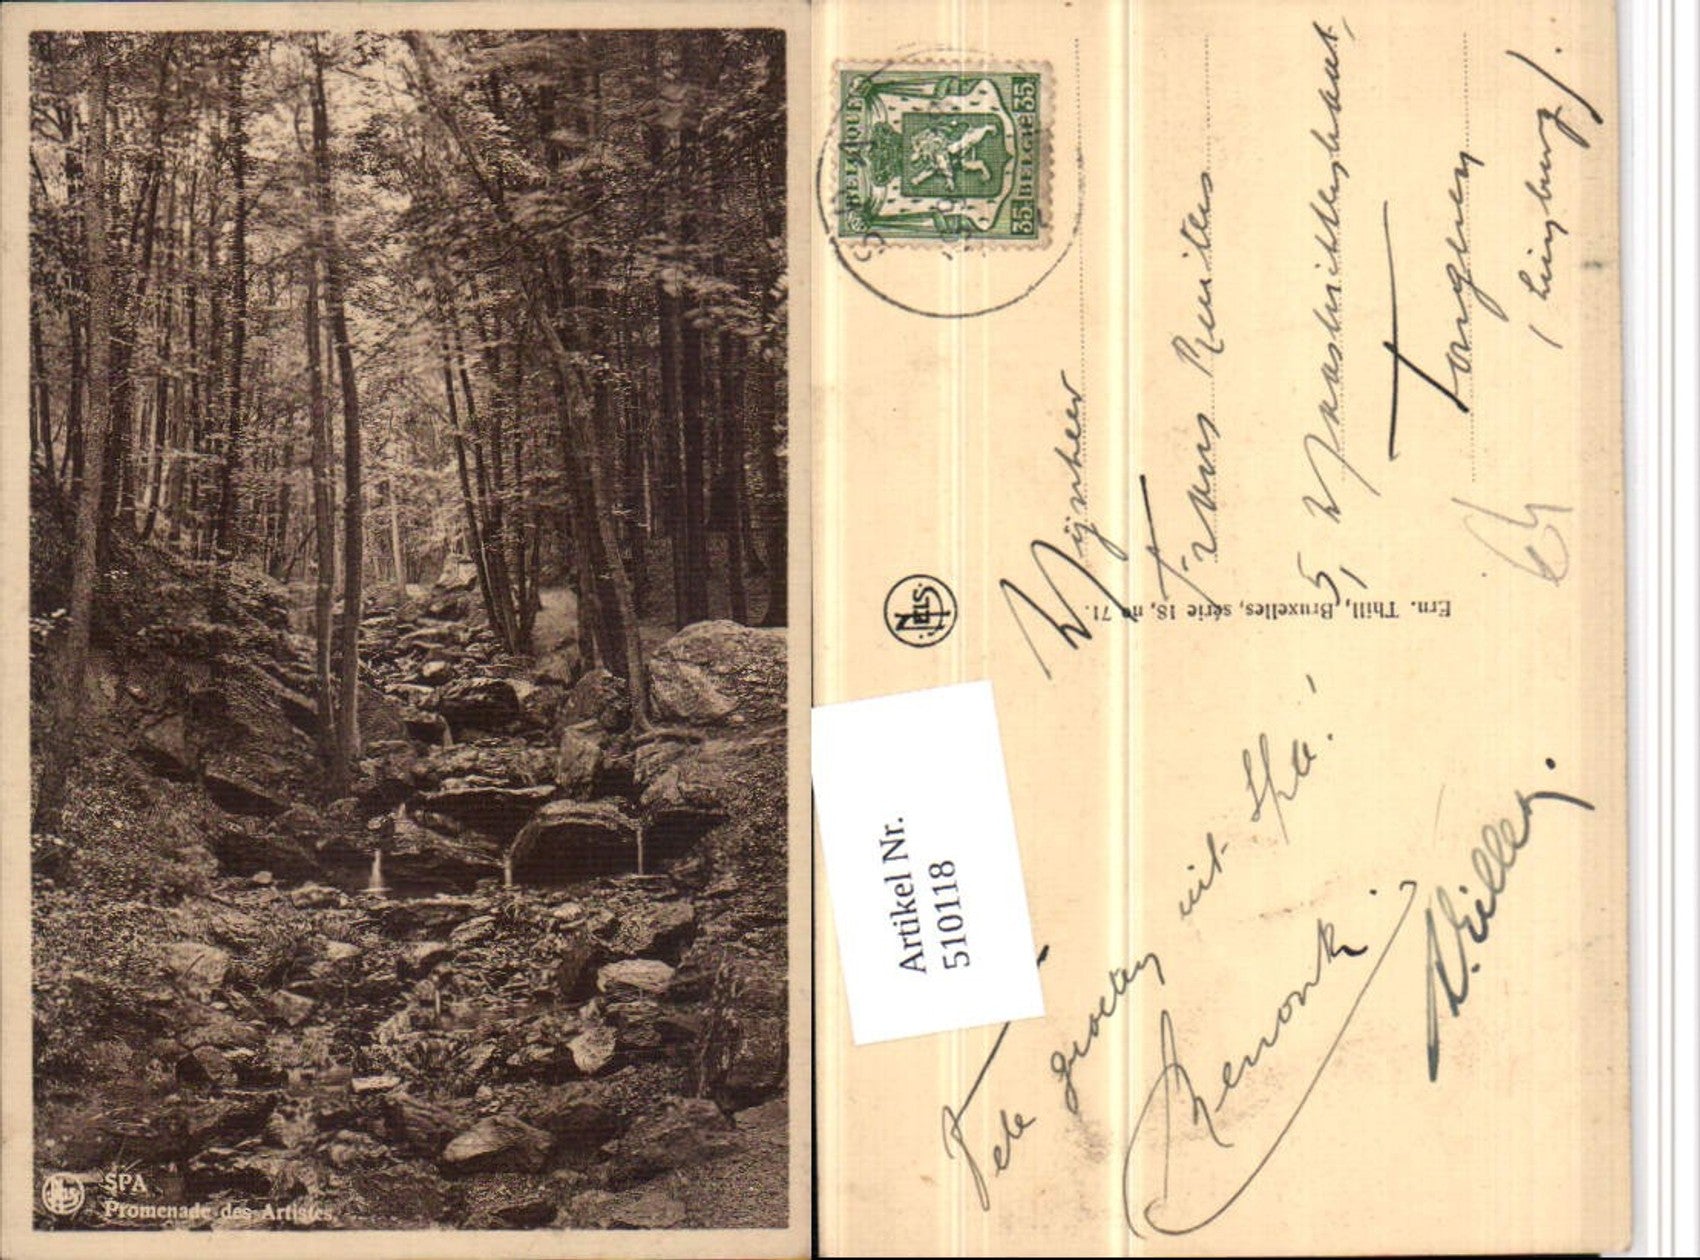 SPA
Promenade des Artistes.
Nels
BELGIQUE
BELGIË
35
35
Mijnheer
Frans
5, Maastrichterstraat,
Tongeren
(Limburg).
Nels
Ern. Thill, Bruxelles, série 18, no 71.
Artikel Nr.
510118
Vele groeten uit Spa!